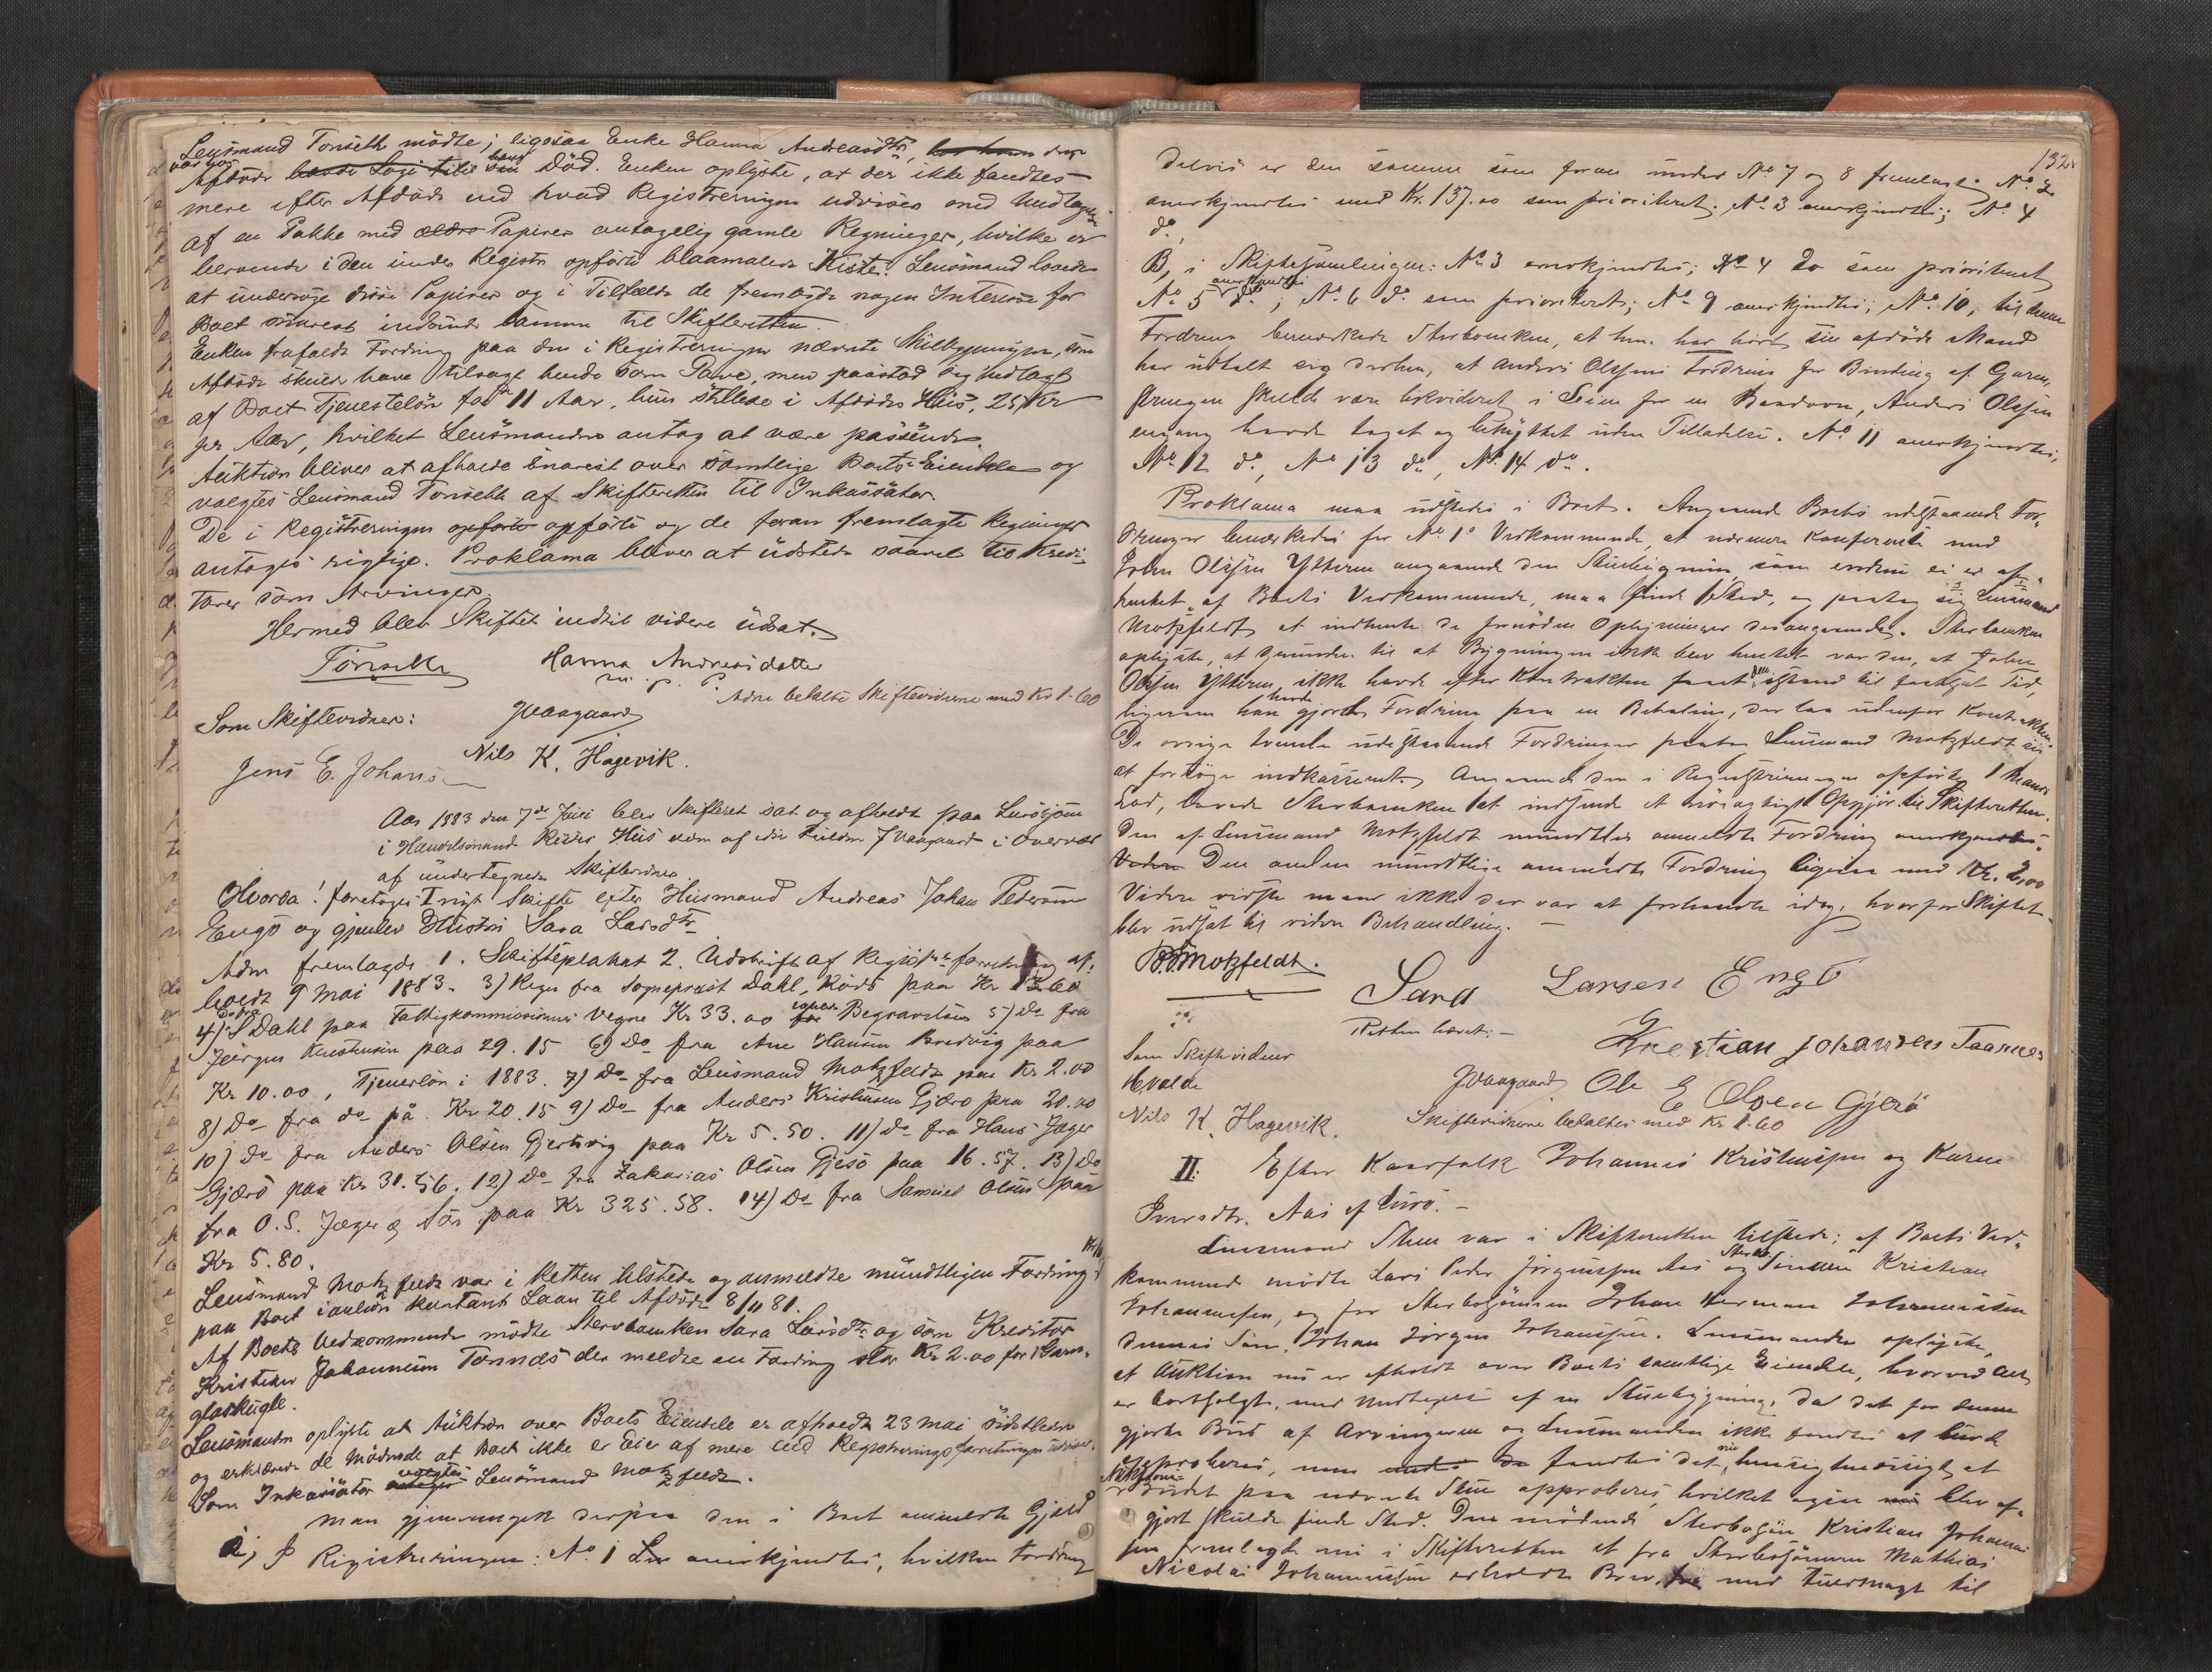 Lensmand Tönseth mödte; ligesaa Enke Hanna Andreasdtr,
Afdöde hans Död. Enken oplyste, at der ikke fandtes
mere efter Afdöde end hvad Registreringen udviser med Undtagelse
af en Pakke med ældre Papirer antagelig gamle Regninger, hvilke er
beroende i den under Registr opförte blaamalede Kiste. Lensmand lovede
at undersöge disse Papirer og i Tilfælde de fremböde nogen Interesse for
Boet snarest indsende samme til Skifteretten.
Enken frafaldt Fordring paa den i Registreringen nævnte
Afdöde skulde have tilsagt hende som Gave, men paastod sig udlagt
af Boet Tjenestelön for 11 Aar, hun i Afdödes Hus, 25 Kr
per Aar, hvilket Lensmanden antog at være passende.
Auktion bliver at afholde snarest over samtlige Boets Eiendele og
valgtes Lensmand Tönseth af Skifteretten til Inkassator.
De i Registreringen opförte opförte og de foran fremlagte Regninger
antoges rigtige. Proklama bliver at udstede saavel til Kredi-
torer som Arvinger.
Hermed blev Skiftet indtil videre udsat.
Tönseth Hanna Andreasdatter
m. p. P.
Adm betalte Skiftevidnerne med Kr 1.60
Som Skiftevidner: JVaagaard
Jens E. Johans Nils K. Hagevik.
Aar 1883 den 7de Juni blev Skifteret sat og afholdt paa
i Handelsmand Hus JVaagaard i Overvær
af undertegnede Skiftevidner.
Hvorda! foretoges I nyt Skifte efter Husmand Andreas Johan Pedersen
Engö og gjenlev Hustru Sara Larsdtr
Adm fremlagde 1. Skifteplakat 2. Udskrift af Registr. forretning af-
holdt 9 Mai 1883. 3) Regn fra Sogneprest Dahl, Rödö paa Kr 13.60
4) Do fra S Dahl paa Fattigkommissionens Vegne Kr 33.00 Begravelsen 5) Do fra
Jörgen paa 29.15 6) Do fra Ane Hansen Bredvig paa
Kr 10.00, Tjenerlön i 1883. 7) Do fra Lensmand Motzfeldt paa Kr 2.00
8) Do fra do på Kr 20.15 9) Do fra Anders Kristensen Gjærö paa 20.00
10) Do fra Anders Olsen Gjersvig paa Kr 5.50. 11) Do fra Hans Jæger
Gjærö paa Kr 31.56. 12) Do fra Zakarias Olsen Gjesö paa 16.57. 13) Do
fra O.S. Jæger & Sön paa Kr 325.58. 14) Do fra Samuel Olsen paa
Kr 5.80.
Lensmand Motzfeldt var i Retten tilstede og anmeldte mundtligen Fordring
paa Boet kontant Laan til Afdöde 8/11 81.
Af Boets Vedkommende mödte Sterboenken Sara Larsdtr og som Kreditor
Kristian Johannesen Tonnes der meldte en Fordring stor Kr 2.00 for 1 Garn-
glaskugle.
Lensmanden oplyste at Auktion over Boets Eiendele er afholdt 23 Mai sidstleden
og erklærede de Mödende at Boet ikke er Eier af mere end Registreringsforretningen udviser.
Som Inkassator valgtes Lensmand Motzfeldt.
Man gjennemgik derpaa den i Boet anmeldte Gjæld
A, I Registreringen: No 1 anerkjendtes, hvilken Fordring
132.
delvis er den samme som foran under No 7 og 8 fremlagte, No 2
anerkjendtes med Kr. 137.00 som prioriteret. No 3 anerkjendtes; No 4
do,
B, i Skiftesamlingen: No 3 anerkjendtes; No 4 Do som prioriteret
No 5 anerkjendtes do; No 6 do som prioriteret; No 9 anerkjendtes; No 10, til denne
Fordring bemærkede Sterboenken, at hun har hört sin afdöde Mand
har udtalt sig derhen, at Anders Olsens Fordring for Binding af Garn,
skulde være likvideret i Leien for en Baadovn, Anders Olsen
engang havde taget og benyttet uden Tilladelse. No 11 anerkjendtes,
No 12 do, No 13 do, No 14 do.
Proklama maa udstedes i Boet. Angaaende Boets udestaaende For-
dringer bemærkedes for No 1s Vedkommende, at nærmere Konference med
John Olsen Ytteren angaaende den Stuebygning, som endnu ei er af-
hentet af Boets Vedkommende, maa finde Sted, og paatog sig Lensmand
Motzfeldt at indhente de fornödne Oplysninger desangaaende. Sterboenken
oplyste, at Grunden til at Bygningen ikke blev hentet var den, at John
Olsen Ytteren ikke havde efter Kontrakten faaet den istand til fastsat Tid,
ligesom han havde gjort Fordring paa en Betaling, der laa udenfor Kontrakten.
De övrige tvende udestaaende Fordringer paatog Lensmand Motzfeldt sig
at forsöge indkasseret. Angaaende den i Registreringen opförte 1 Mands
Lod, lovede Sterboenken at indsende et nöiagtigt Opgjör til Skifteretten.
Den af Lensmand Motzfeldt mundtlig anmeldte Fordring anerkjendtes.
Den anden mundtlige anmeldte Fordring ligesaa med Kr. 2,00
Videre vidste man ikke der var at forhandle idag, hvorfor Skiftet
blev udsat til videre Behandling.
Motzfeldt. Sara Larsen Engö
Retten hævet. Krestian Johansen Taanes
Som Skiftevidner JVaagaard Ole E Olsen Gjerö
Hvalde
Nils K. Hagevik. Skiftevidnerne betaltes med Kr 1.60
II. Efter Kaarfolk Johannes Kristensen og Karen
Iversdtr. Aas af Lurö.
Lensmand Steen var i Skifteretten tilstede; af Boets Ved-
kommende mödte Lars Peder Jörgensen Aas og Sterbosönnen Kristian
Johannesen, og for Sterbosönnen Johan Herman Johannesen
dennes Sön, Johan Jörgen Johansen. Lensmanden oplyste,
at Auktion nu er afholdt over Boets samtlige Eiendele, hvorved Alt
er bortsolgt, med Undtagelse af en Stuebygning, da det for denne
gjorte Bud af Arvingerne og Lensmanden ikke fandtes at burde
approberes, men fandtes det nu hensigtsmæssigt, at
Auktionsbudet paa nævnte Stue approberes, hvilket ogsaa blev af-
gjort skulde finde Sted. Den mödende Sterbosön Kristian Johanne-
sen fremlagde nu i Skifteretten et fra Sterbosönnen Mathias
Nicolai Johannesen erholdt Brev med Fuldmagt til